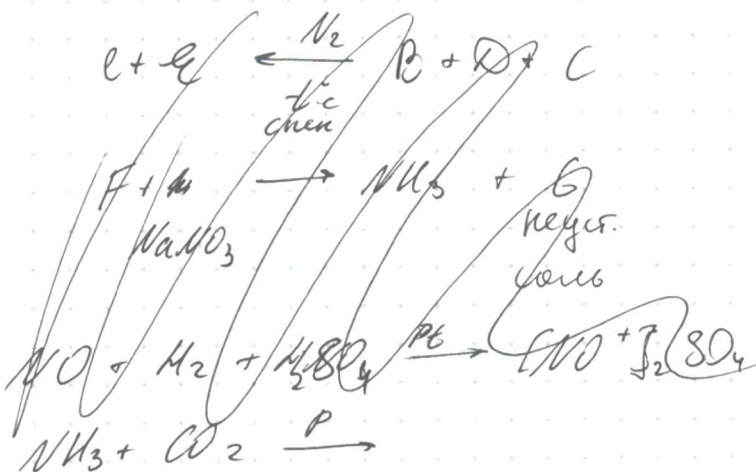 C + E ← N₂ B + D + C
t°C
спек
F + → NH₃ + G
NaNO₃ неуст.
соль
NO + H₂ + H₂SO₄ Pt → [NO⁺]₂SO₄
NH₃ + CO₂ P →